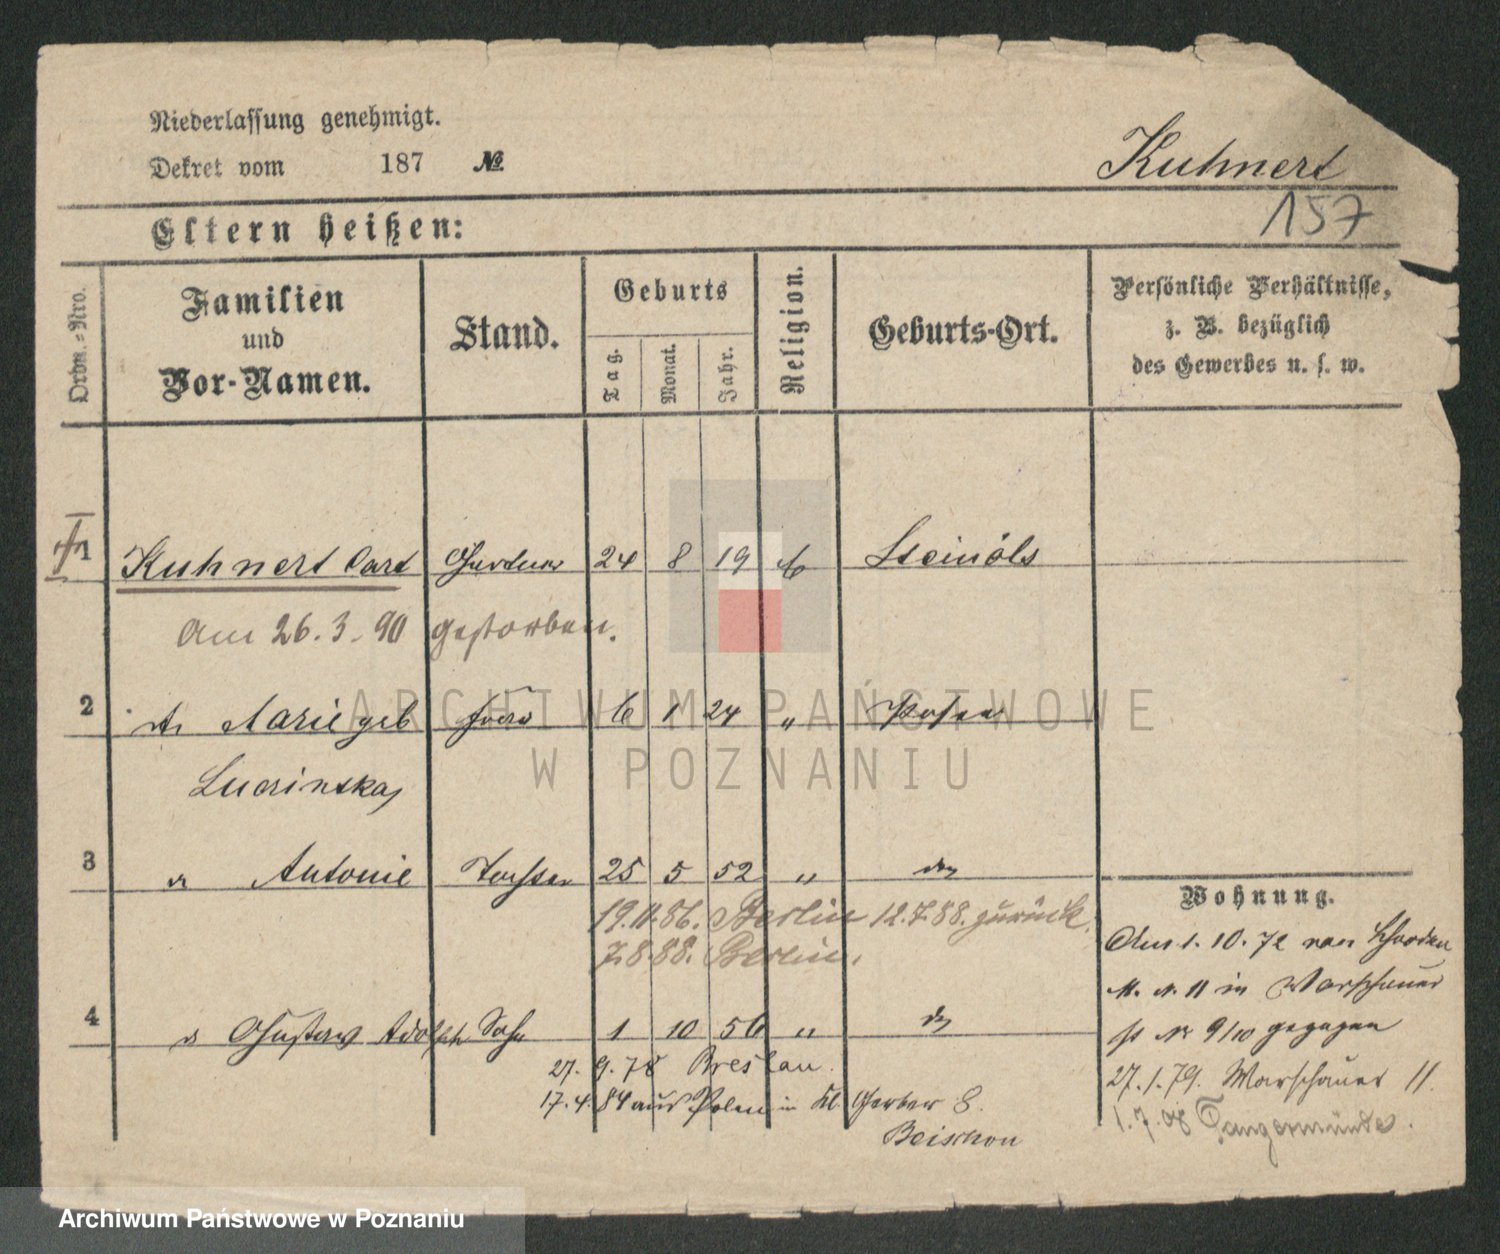 Niederlassung genehmigt.
Dekret vom 187 №
Kuhnert
157
Eltern heißen:
Ordn.=Nro.
Familien und Vor-Namen.
Stand.
Geburts
Tag. Monat. Jahr.
Religion.
Geburts-Ort.
Persönliche Verhältnisse,
z. B. bezüglich
des Gewerbes u. s. w.
1 Kuhnert Carl 24 8 19 Steinöls
Am 26.3.90 gestorben.
2 Marie geb Frau 6 1 24 " Posen
3 Antonie Tochter 25 5 52 " do
19.11.86. Berlin 12.7.88. zurück.
7.8.88. Berlin.
4 Gustav Adolph Sohn 1 10 56 " do
27.9.78 Breslau.
17.4.84 aus Polen in Kl Gerber 8.
Wohnung.
Am 1.10.72 von
11 in Warschauer
9/10 gezogen
27.1.79. Warschauer 11.
1.7.08 Tangermünde.
ARCHIWUM PAŃSTWOWE
W POZNANIU
Archiwum Państwowe w Poznaniu